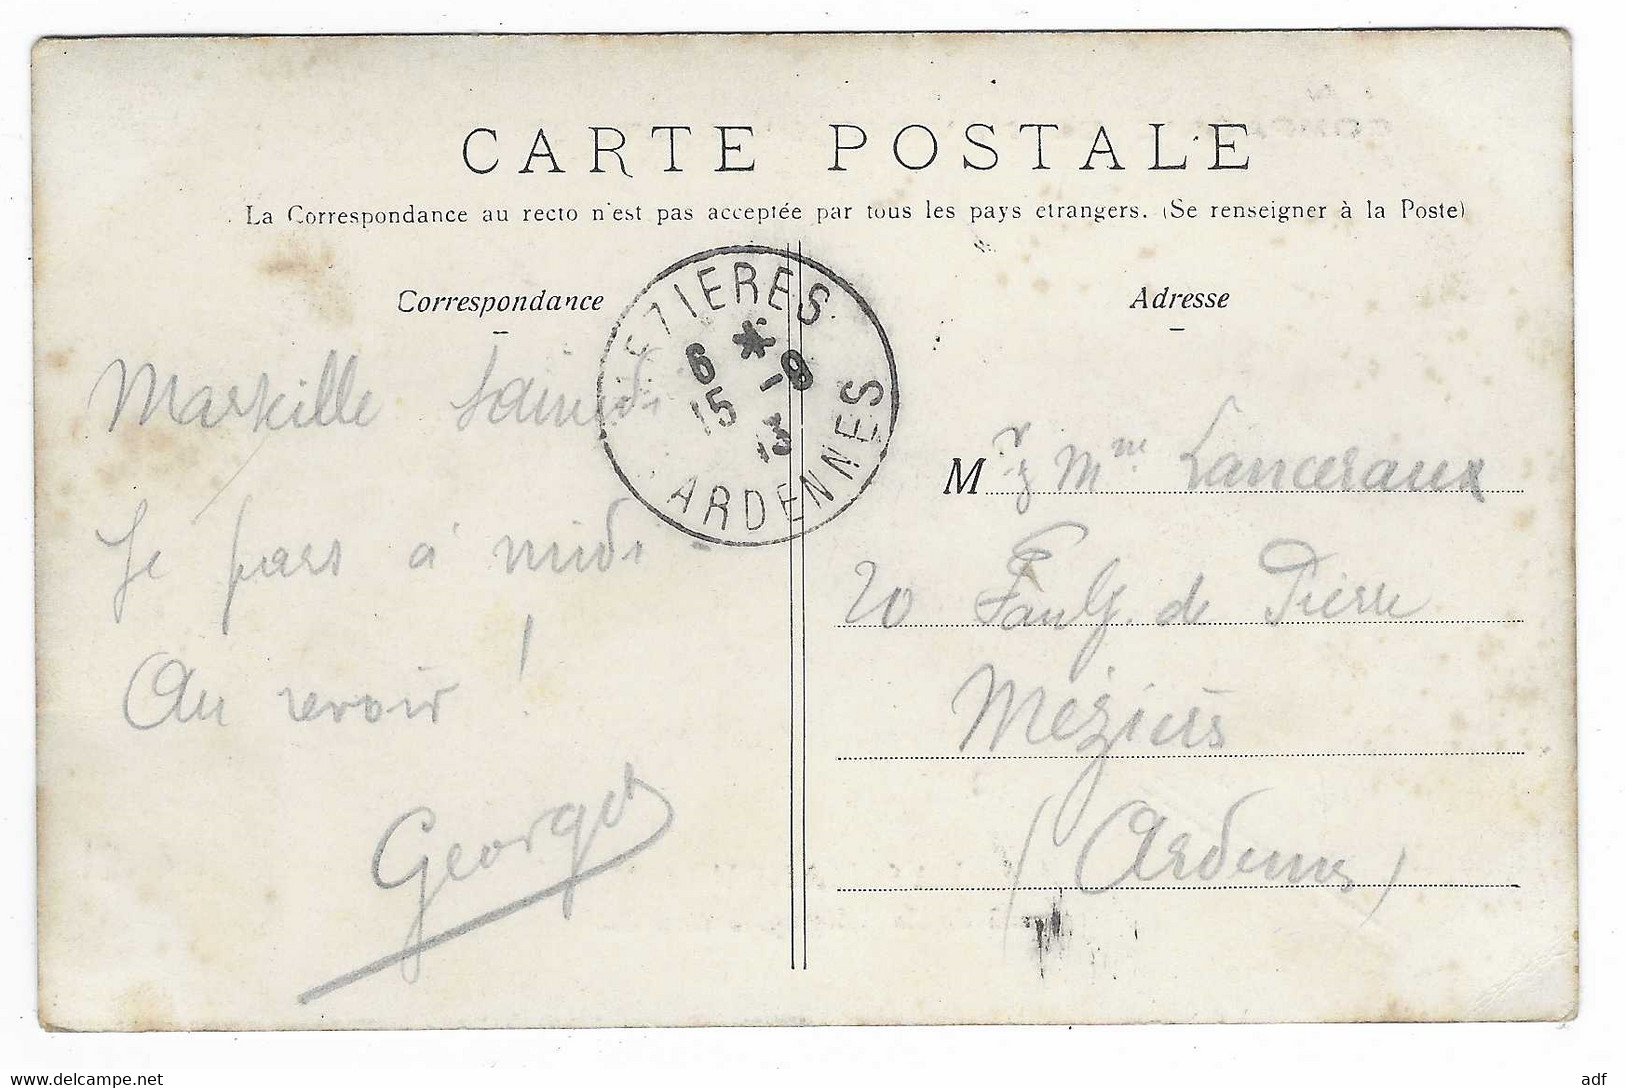 CARTE POSTALE
La Correspondance au recto n'est pas acceptée par tous les pays etrangers. (Se renseigner à la Poste)
Correspondance
Adresse
MEZIERES
6 * 15 -9 13
ARDENNES
Marseille Samedi
Je pars à midi -
Au revoir !
Georges
Mr & Mme Lanceraux
20 Faubg. de Pierre
Mézières
(Ardennes)
www.delcampe.net
adf